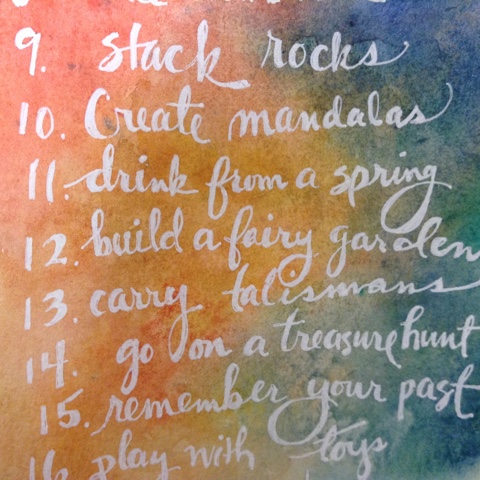 9. stack rocks
10. Create mandalas
11. drink from a spring
12. build a fairy garden
13. carry talismans
14. go on a treasure hunt
15. remember your past
16. play with toys